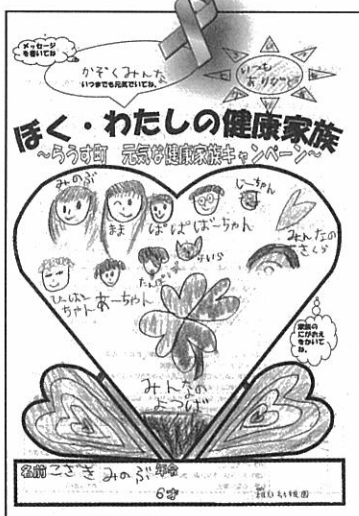 メッセージを書いてね
かぞくみんな
いつまでも元気でいてね。
いつも
ありがとう
ぼく・わたしの健康家族
～らうす町 元気な健康家族キャンペーン～
みのぶ
まま
ぱぱ
ばーちゃん
じーちゃん
みんなの
さくら
ひーばーちゃん
あーちゃん
家族の
にがおえ
をかいて
ね。
みんなの
よつば
名前 こざき みのぶ 年令
6才